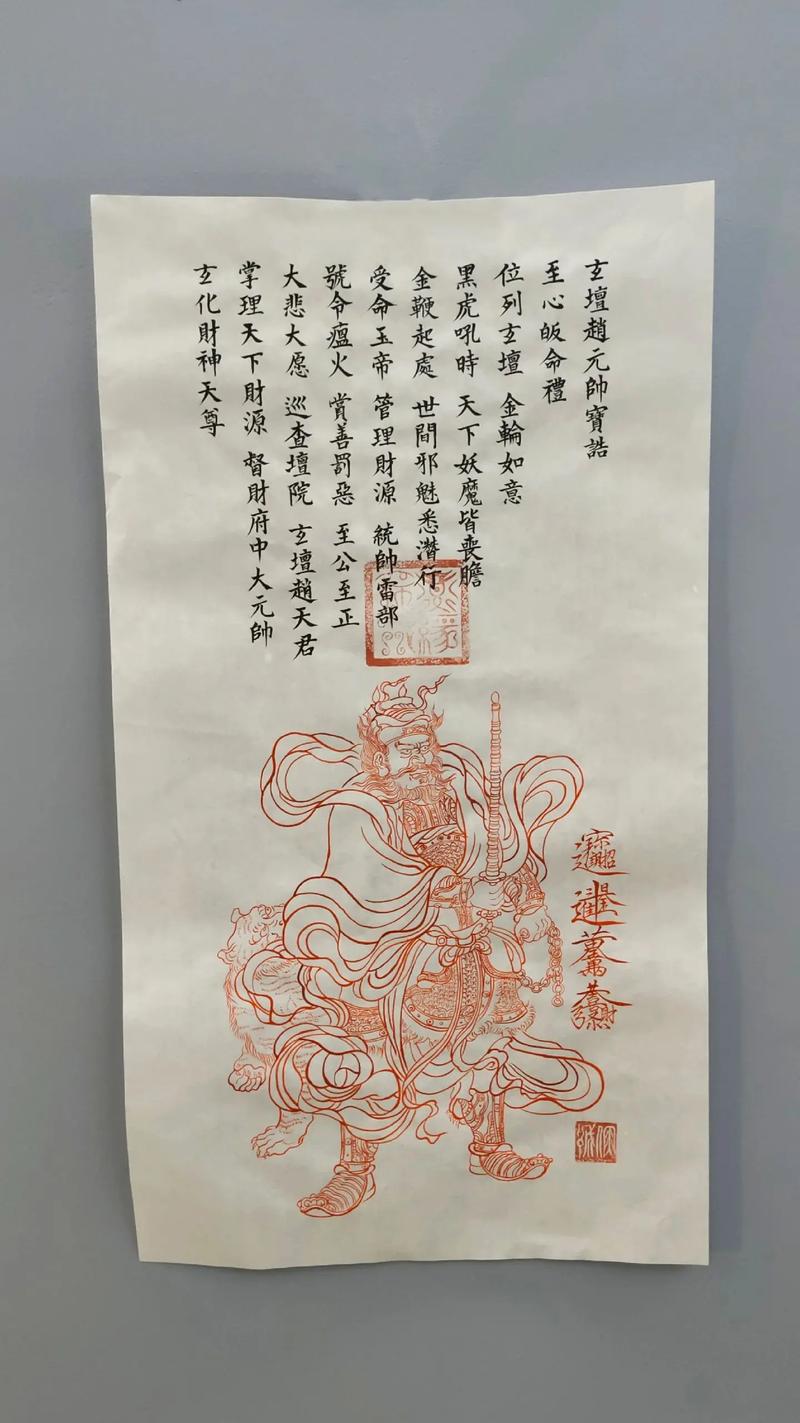 玄壇趙元帥寶誥
至心皈命禮
位列玄壇 金輪如意
黑虎吼時 天下妖魔皆喪膽
金鞭起處 世間邪魅悉潛行
受命玉帝 管理財源 統帥雷部
號令瘟火 賞善罰惡 至公至正
大悲大愿 巡查壇院 玄壇趙天君
掌理天下財源 督財府中大元帥
玄化財神天尊